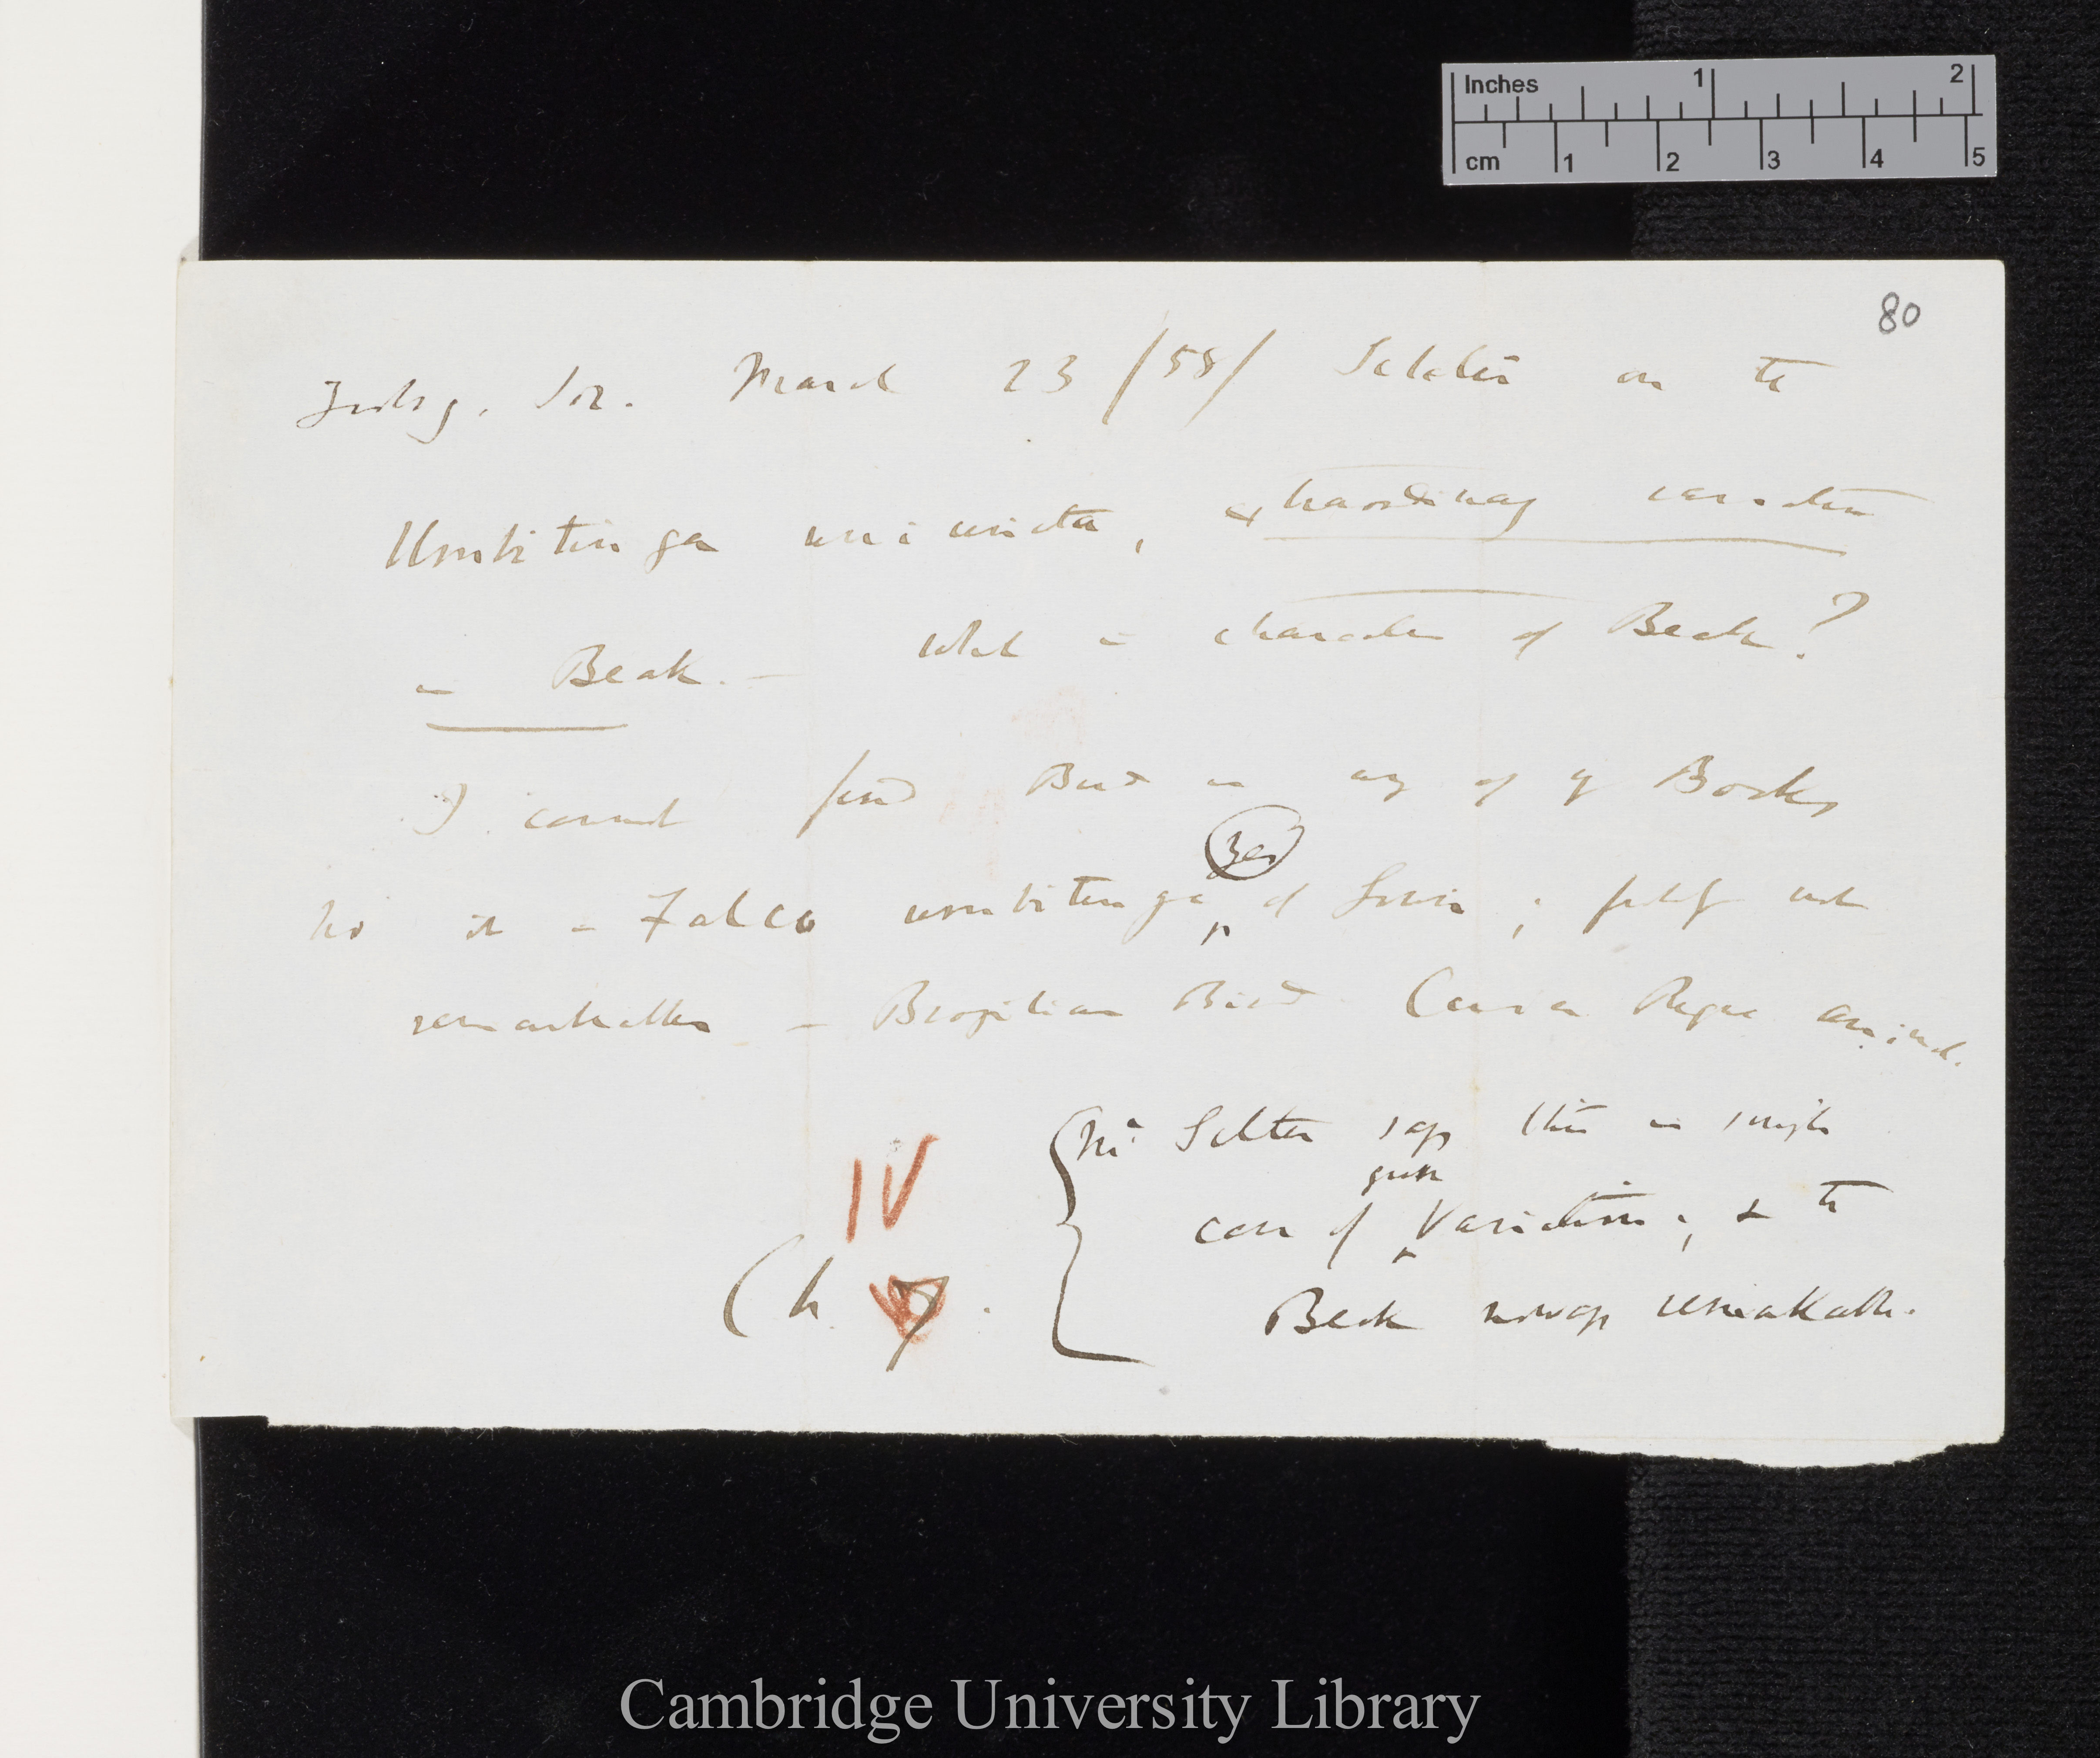 80
Zoolog. Soc. March 23 /58/ Sclater on the
Urubitinga unicincta, extraordinary variation
in Beak. — What is character of Beak?
I cannot find Bird in any of my Books
No it is Falco urubitinga of ; probably not
remarkable — Brazilian Bird Cuvier Regne animal.
Mr Sclater says this is single
case of Variation; & the
Beak noways remarkable.
IV
Ch 7.
Inches 1 2
cm 1 2 3 4 5
Cambridge University Library